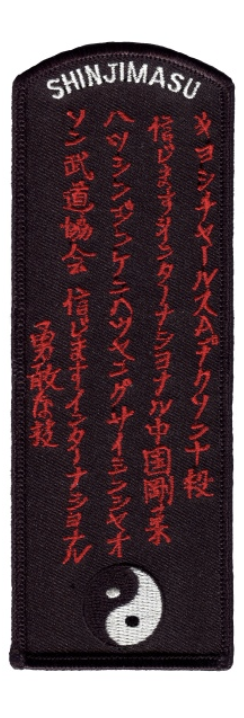 SHINJIMASU
キヨシチャールスAヂクソン十段
信じますインターナショナル中国剛柔
ハツシンヅンケンハツキングサイミンシャオ
ソン武道協会 信じますインターナショナル
勇敢な